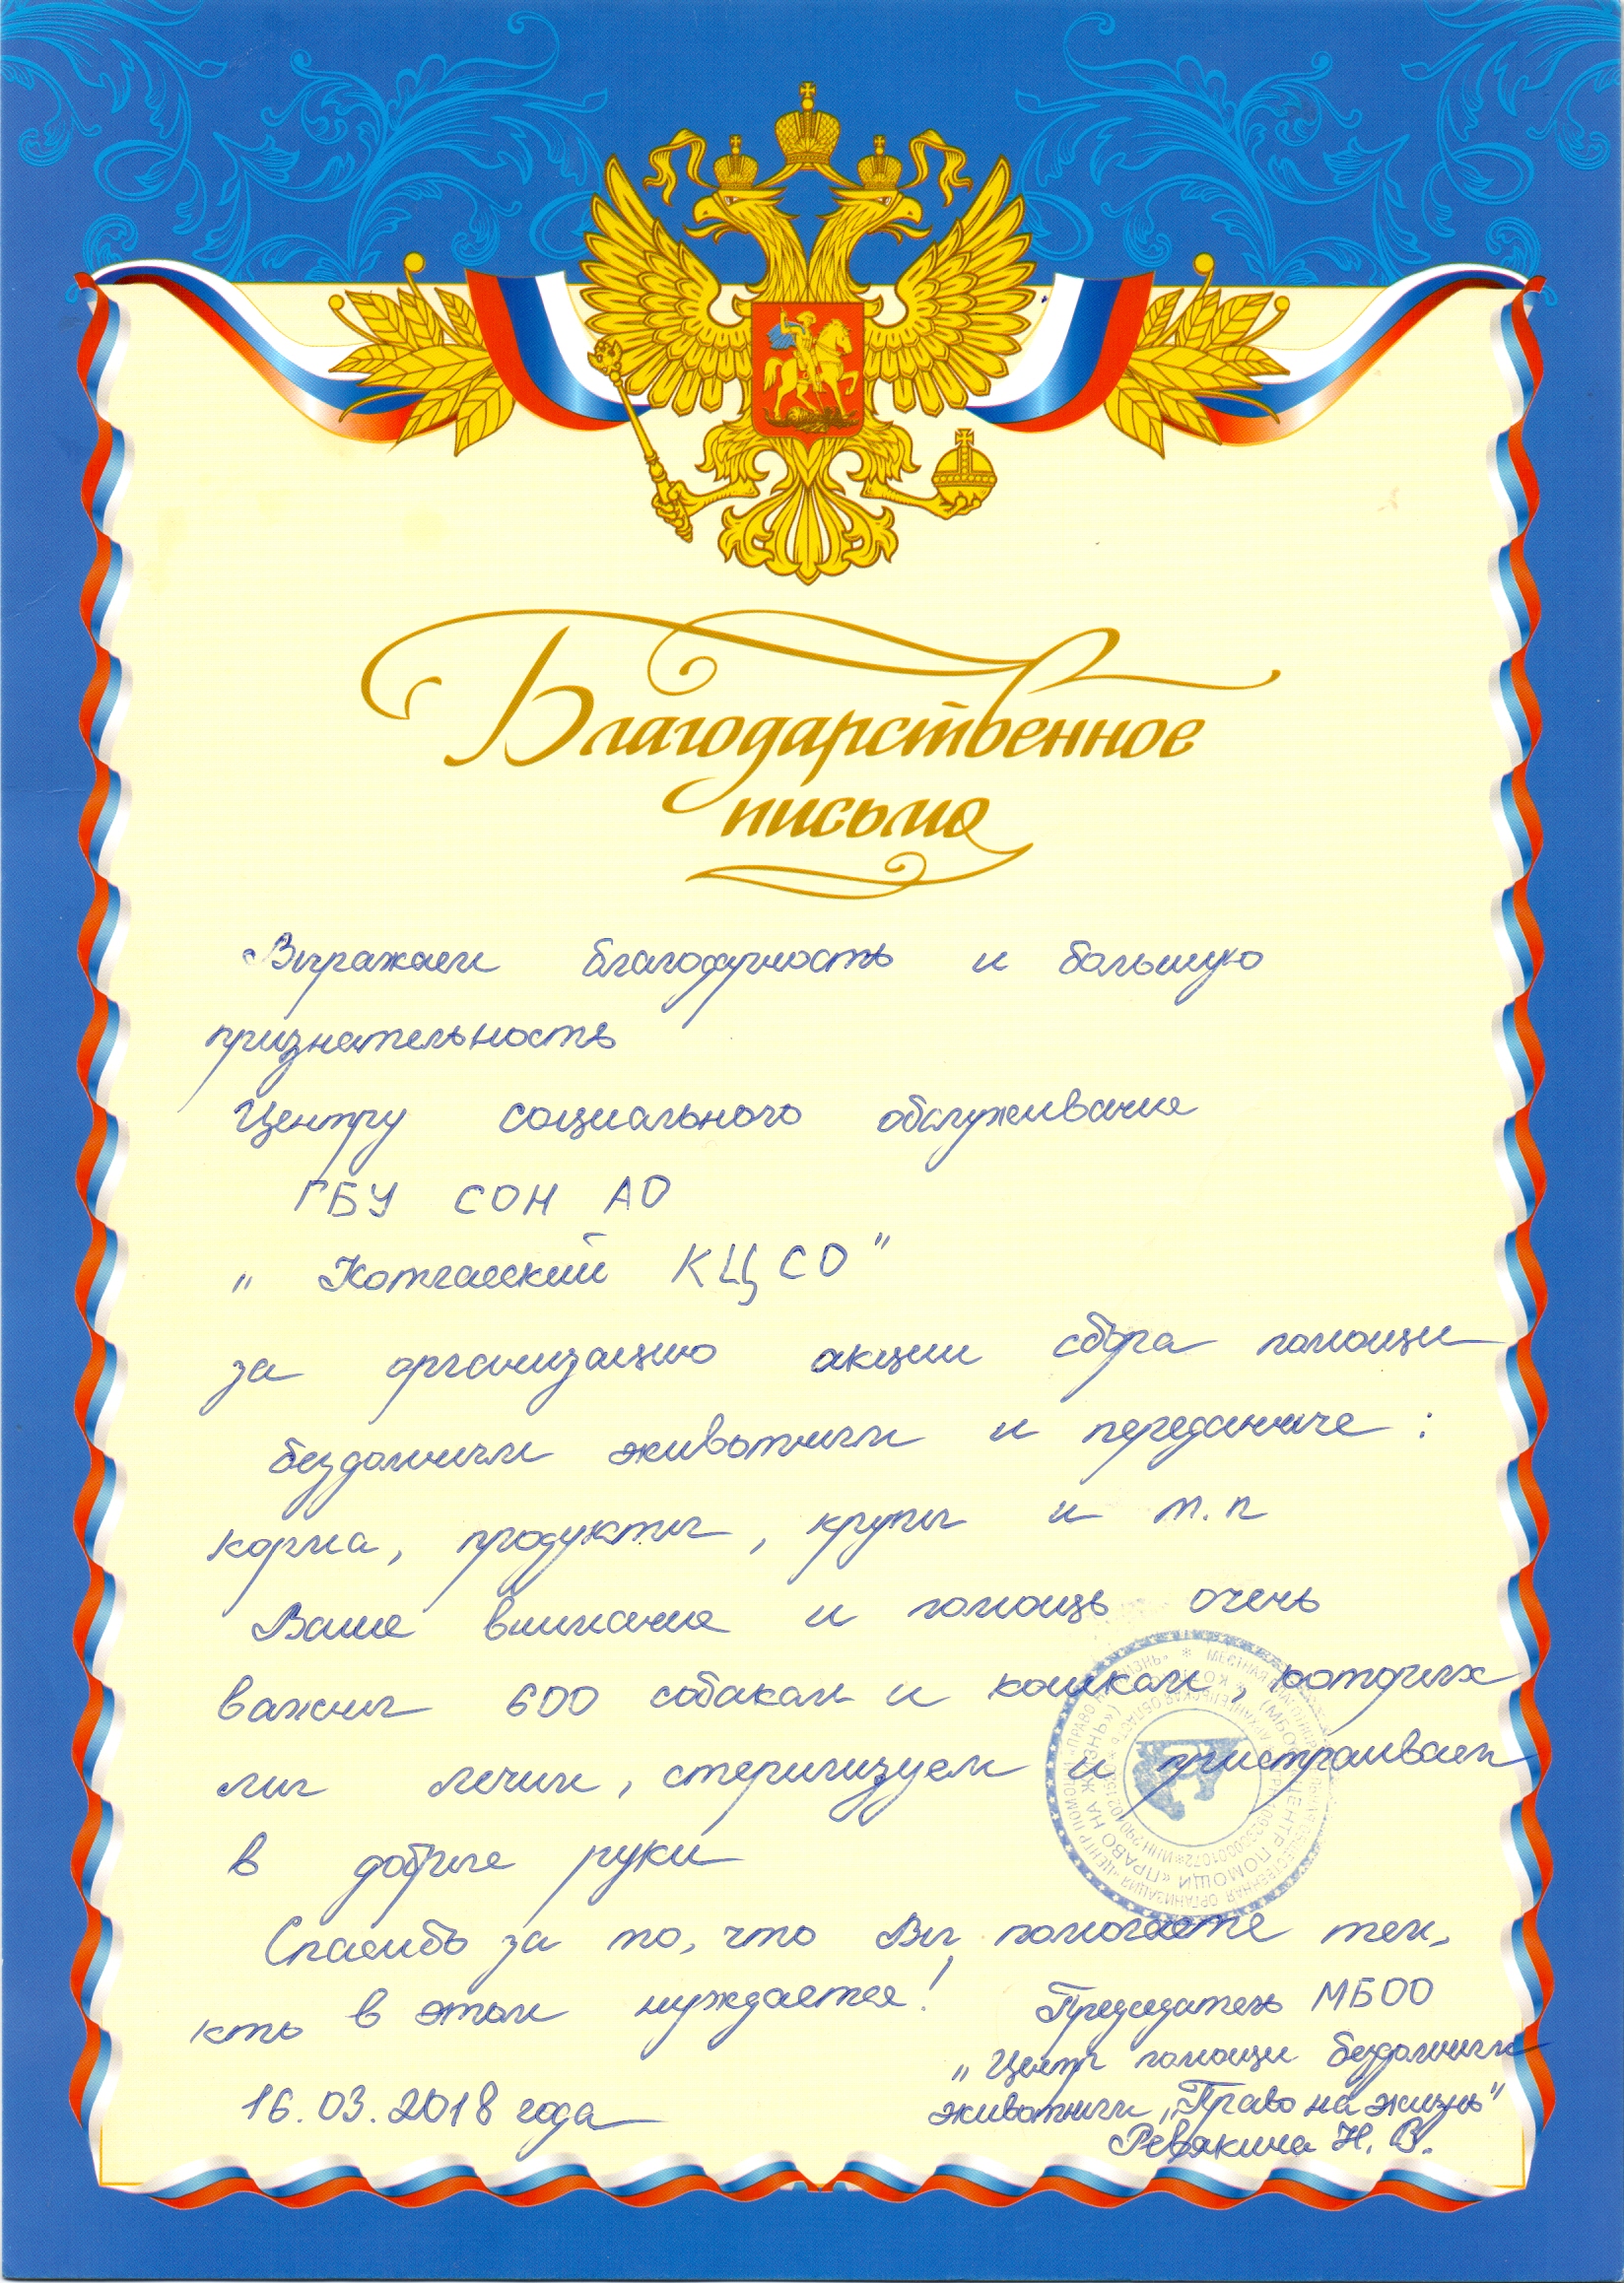 Благодарственное
письмо
Выражаем благодарность и большую
признательность
Центру социального обслуживание
ГБУ СОН АО
„ Котласский КЦСО"
за организацию акции сбора помощи
бездомным животным и переданные :
корма, продукты, крупы и т.п
Ваше внимание и помощь очень
важны 600 собакам и кошкам, которых
мы лечим, стерилизуем и пристраиваем
в добрые руки
Спасибо за то, что Вы помогаете тем,
кто в этом нуждается!
Председатель МБОО
„Центр помощи бездомным
животным „Право на жизнь"
Ревякина Н. В.
16.03.2018 года
МЕСТНАЯ ОБЩЕСТВЕННАЯ ОРГАНИЗАЦИЯ «ЦЕНТР ПОМОЩИ «ПРАВО НА ЖИЗНЬ»
(МБОО «ЦЕНТР ПОМОЩИ «ПРАВО НА ЖИЗНЬ»)